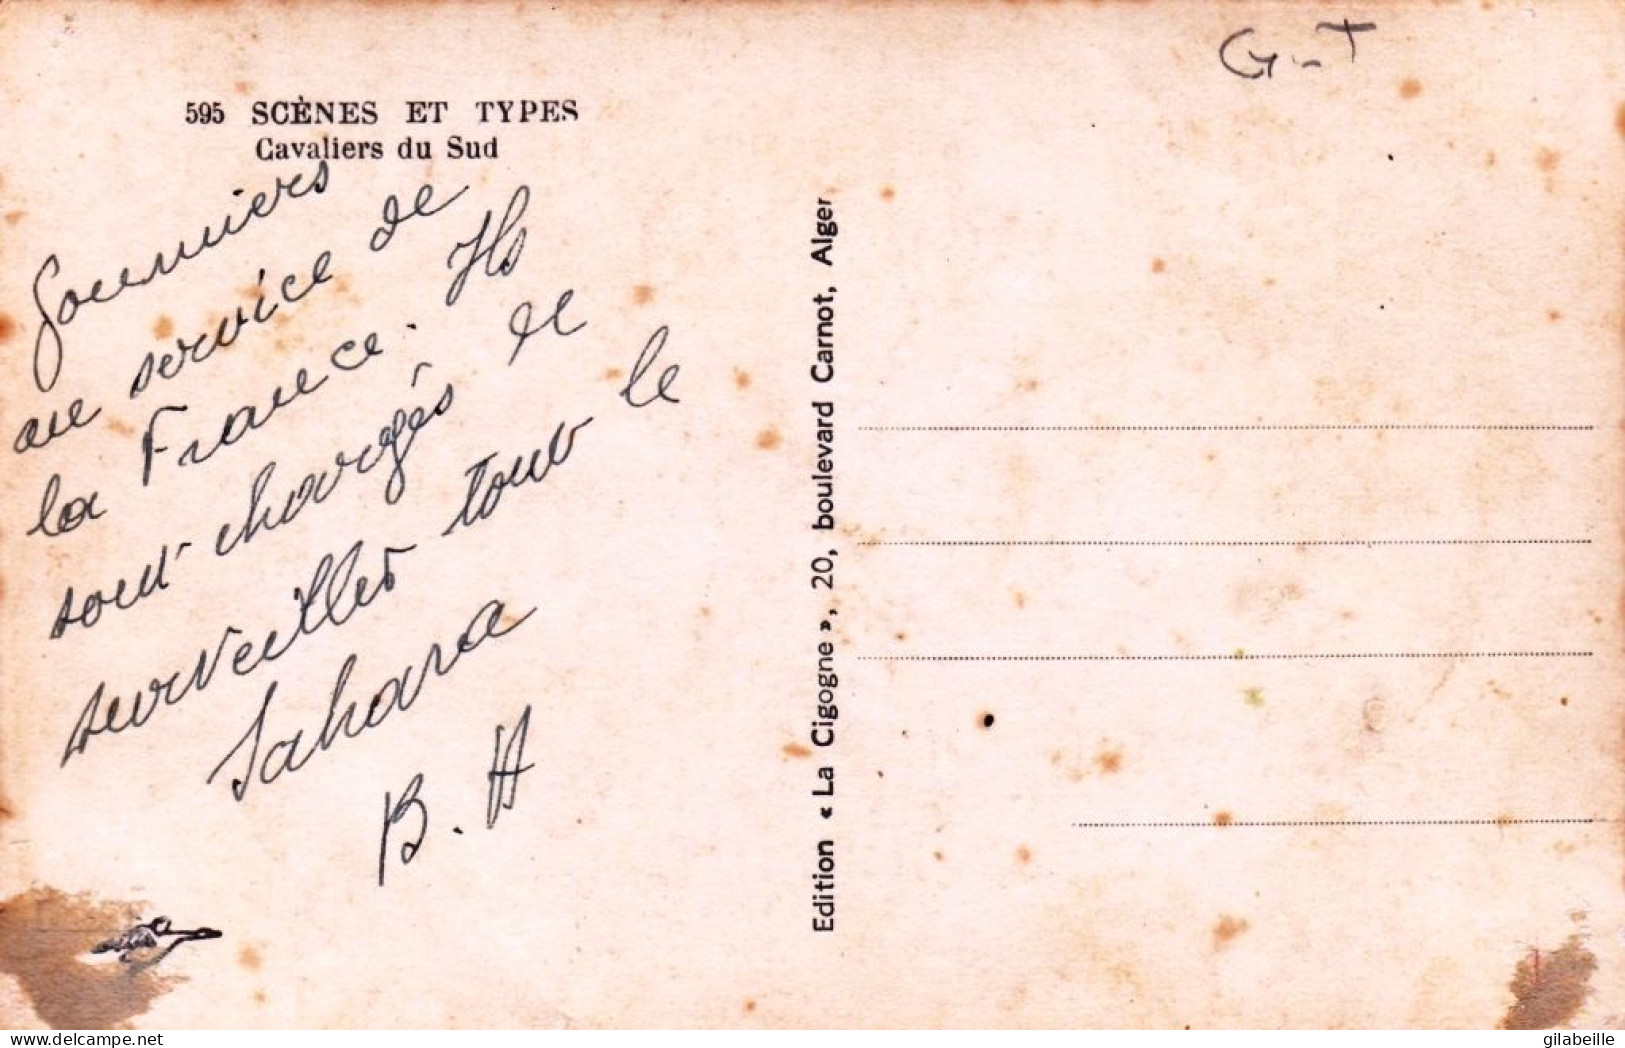 G-T
595 SCÈNES ET TYPES
Cavaliers du Sud
Goumiers
au service de
la France. Ils
sont chargés de
surveiller tout le
Sahara
B. H
Edition « La Cigogne », 20, boulevard Carnot, Alger
delcampe.net
gilabeille